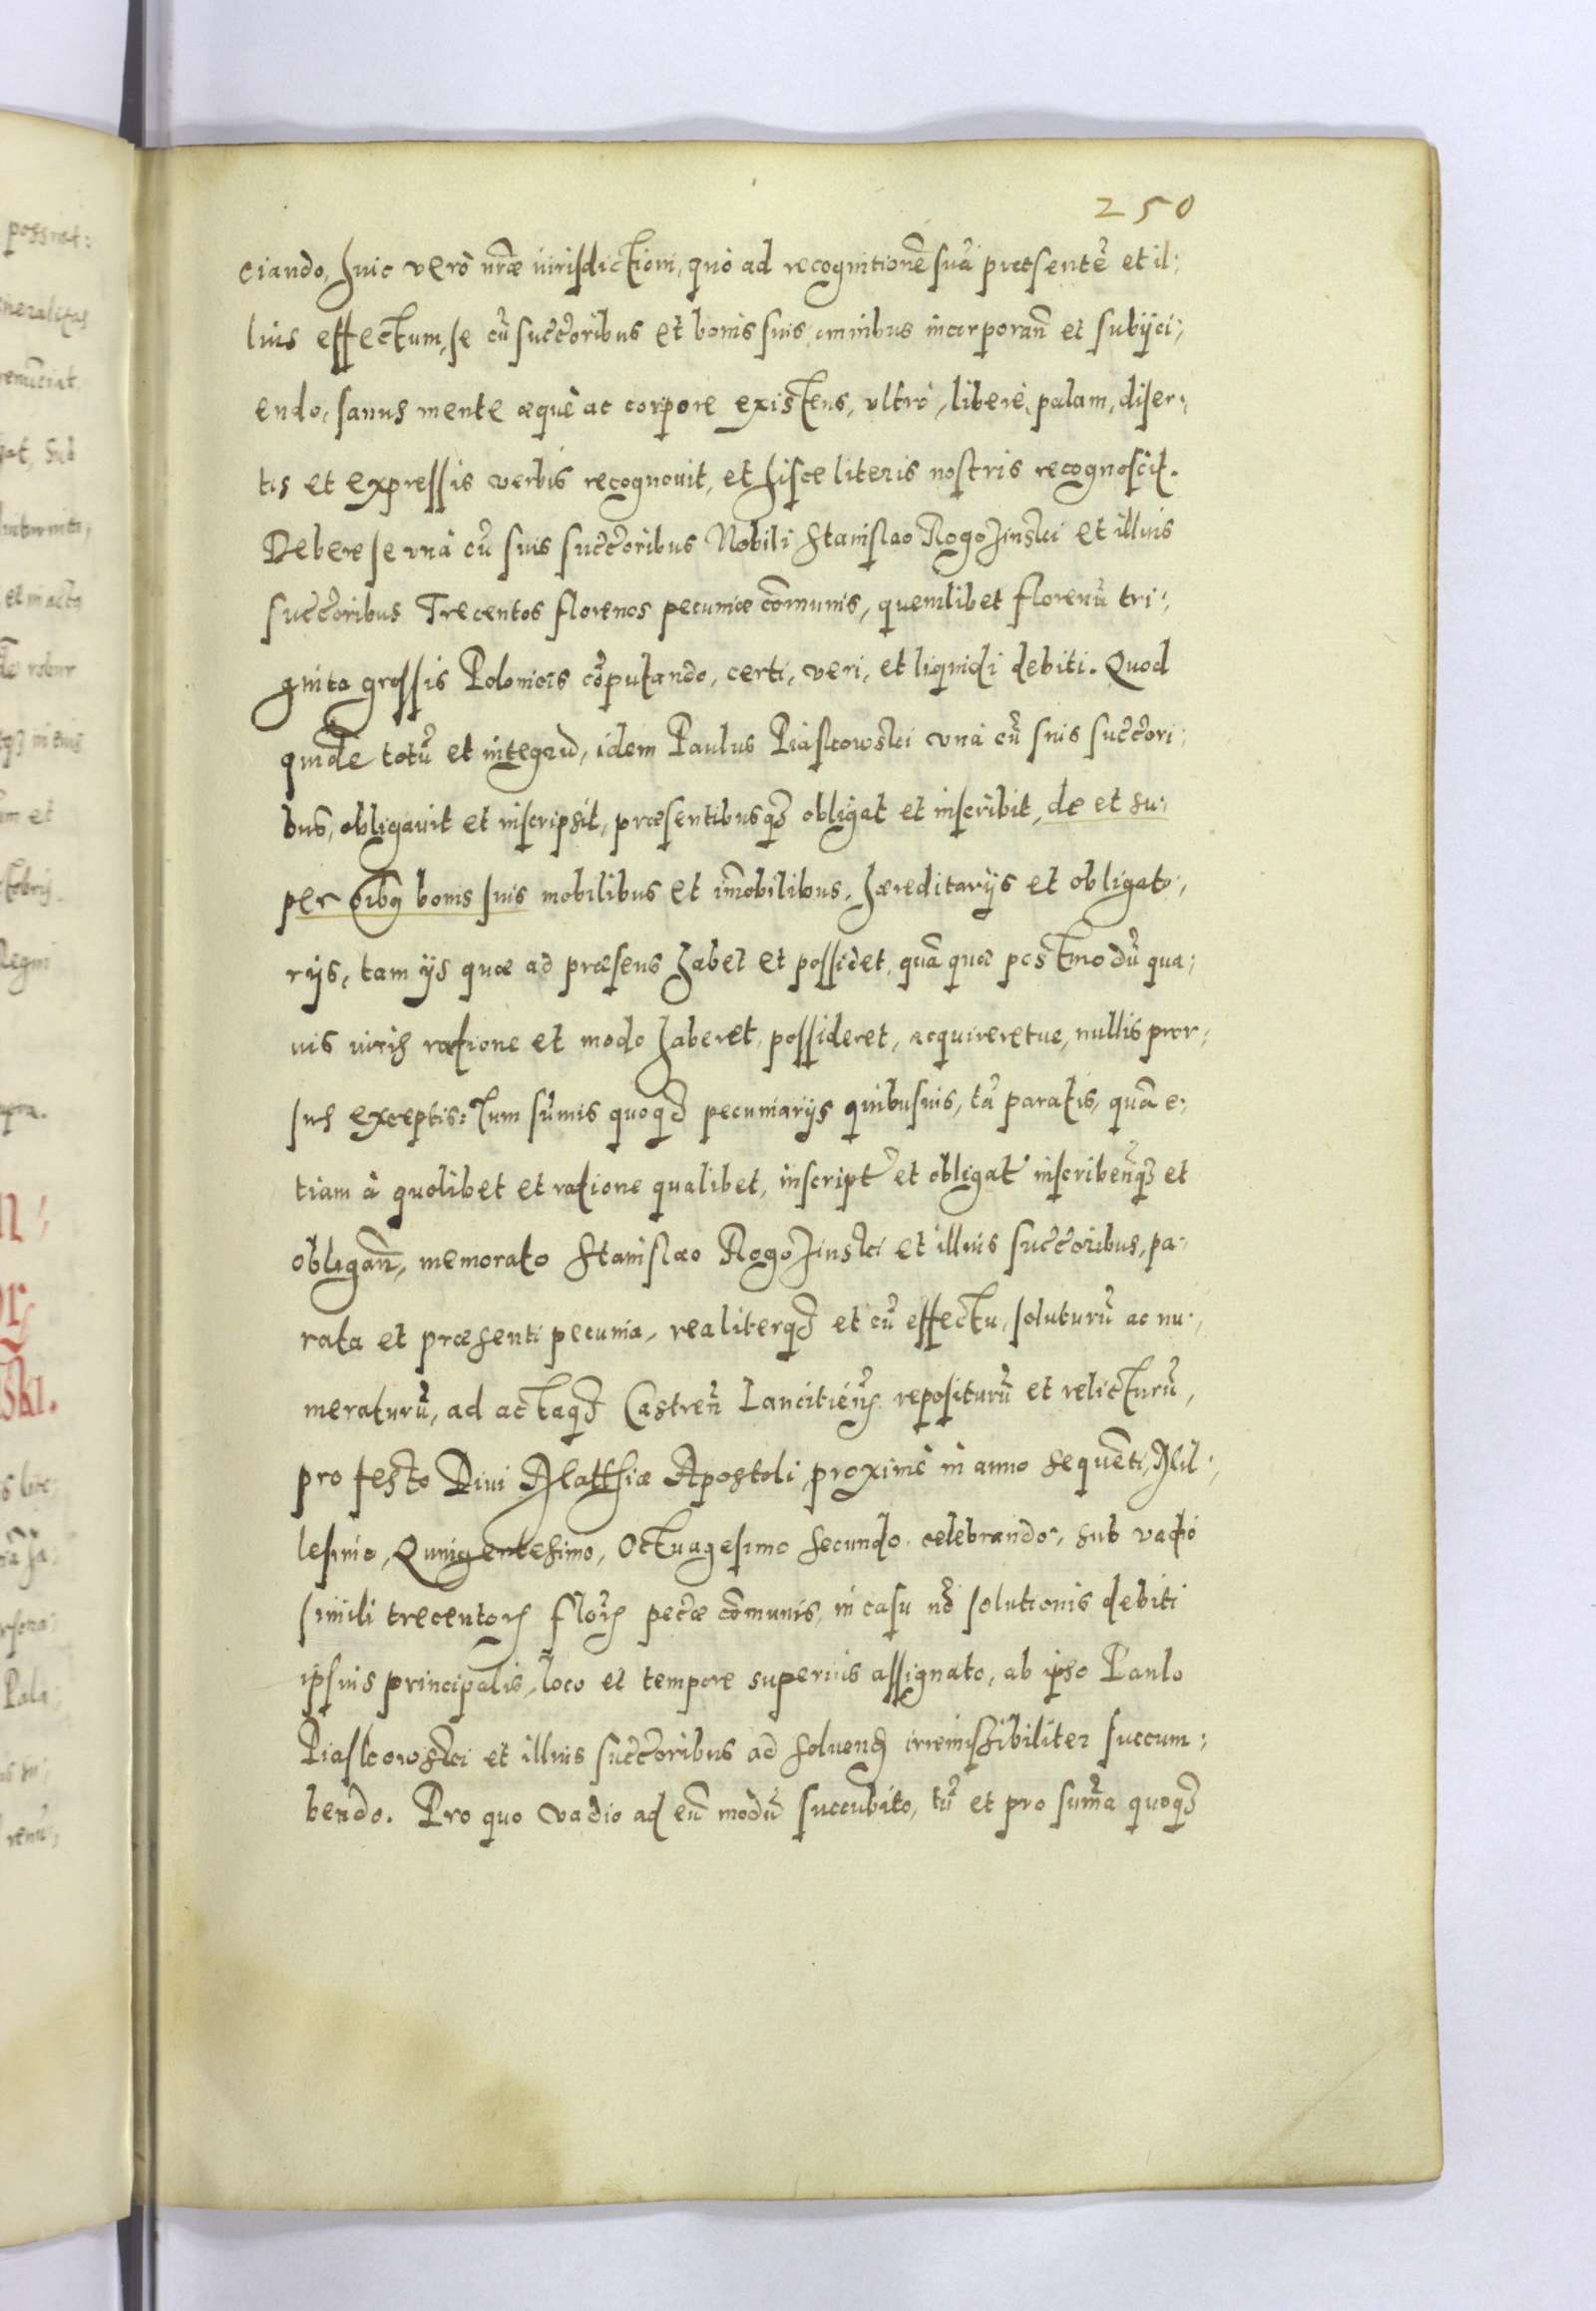 250
ciando, huic verò nr̃æ iurisdictioni, quò ad recognitionẽ suã præsentẽ et il:
lius effectum, se cũ succ̃oribus et bonis suis omnibus incorporan̄ et subijci:
endo, sanus mente æquè ac corpore existens, ultrò, liberè, palam, diser:
tis et expressis verbis recognouit, et hisce literis nostris recognoscit.
Debere se vnà cũ suis succ̃oribus Nobili Stanislao Rogozinski et illius
succ̃oribus Trecentos florenos pecuniæ cõmunis, quemlibet florenũ tri:
ginta grossis Polonicis cõputando, certi, veri, et liquidi debiti. Quod
quidẽ totũ et integrũ, idem Paulus Piaskowski vnà cũ suis succ̃ori:
bus, obligauit et inscripsit, præsentibusqȝ obligat et inscribit, de et su:
per oĩbꝯ bonis suis mobilibus et im̃obilibus, hæreditarijs et obligato:
rijs, tam ijs quæ ad præsens habet et possidet, quã quæ postmodũ qua:
uis iuris ratione et modo haberet, possideret, acquireretue, nullis pror:
sus exceptis: Tum sum̃is quoqȝ pecuniarijs quibusuis, tã paratis, quã e:
tiam à quolibet et ratione qualibet, inscript̃ et obligat̃ inscriben̄qȝ et
obligan̄, memorato Stanislao Rogozinski et illius succ̃oribus, pa:
rata et præsenti pecunia, realiterqȝ et cũ effectu, soluturũ ac nu:
meraturũ, ad actaqȝ Castren̄ Lancitien̄ repositurũ et relicturũ,
pro festo Diui Matthiæ Apostoli, proximè in anno sequẽti, Mil:
lesimo, Quingentesimo, Octuagesimo secundo celebrando, sub vadio
simili trecentoꝝ floꝝ pec̃æ cõmunis, in casu nõ solutionis debiti
ipsius principalis, loco et tempore superius assignato, ab ipso Paulo
Piaskowski et illius succ̃oribus ad soluend̄ irremissibiliter succum:
bendo. Pro quo vadio ad eũ modũ succubito, tũ et pro sum̃a quoqȝ